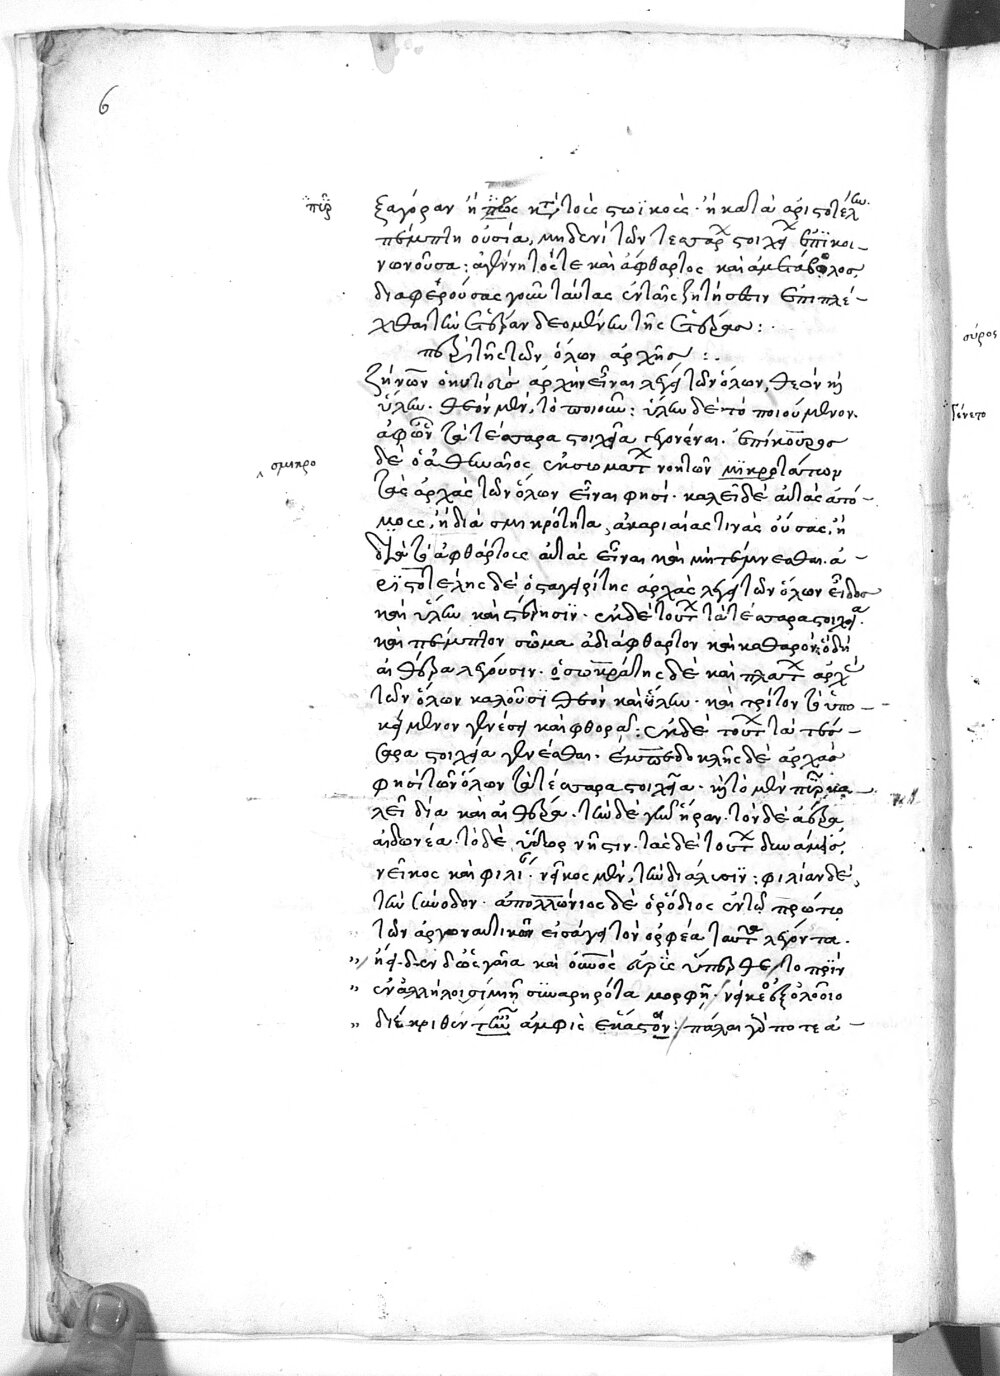 6
πῦρ
ξαγόραν ἢ πῶς κατὰ τοὺς στωϊκοὺς· ἢ κατὰ ἀριστοτέλην
πέμπτη οὐσία, μηδενὶ τῶν τεσσάρων στοιχείων ἐπικοι-
νωνοῦσα: ἀγέννητός τε καὶ ἄφθαρτος καὶ ἀμετάβολος
διαφερούσας γοῦν ταύτας ἐν ταῖς ζητήσεσιν ἐπιπλέ-
κεσθαι τῶν
περὶ τῆς τῶν ὅλων ἀρχῆς :.
ζήνων ὁ κιτιεὺς ἀρχὴν εἶναι λέγει τῶν ὅλων, θεὸν καὶ
ὕλην. θεὸν μὲν, τὸ ποιοῦν: ὕλην δὲ τὸ ποιούμενον.
ἀφ' ὧν τὰ τέσσαρα στοιχεῖα γεγονέναι. ἐπίκουρος
σμικρο
δὲ ὁ ἀθηναῖος ἐκ σωμάτων νοητῶν μϊκροτάτων
τὰς ἀρχὰς τῶν ὅλων εἶναι φησί. καλεῖ δὲ αὐτὰς ἀτό-
μους, ἢ διὰ σμικρότητα, ἀκαριαίας τινὰς οὔσας, ἢ
διὰ τὸ ἀφθάρτους αὐτὰς εἶναι καὶ μὴ τέμνεσθαι. ἀ-
ρϊστοτέλης δὲ ὁ σταγειρίτης ἀρχὰς λέγει τῶν ὅλων εἶδος
καὶ ὕλην καὶ στέρησιν. ἐκ δὲ τούτων τὰ τέσσαρα στοιχεῖα.
καὶ πέμπτον σῶμα ἀδιάφθαρτον καὶ καθαρόν: ὃ δὴ
αἰθέρα λέγουσιν. ὁ σωκράτης δὲ καὶ πλάτων ἀρχὴν
τῶν ὅλων καλοῦσϊ θεὸν καὶ ὕλην. καὶ τρίτον τὸ ὑπο-
κείμενον γενέσει καὶ φθορᾷ: ἐκ δὲ τούτων τὰ τέσ-
σαρα στοιχεῖα γενέσθαι. ἐμπεδοκλῆς δὲ ἀρχὰς
φησὶ τῶν ὅλων τὰ τέσσαρα στοιχεῖα. καὶ τὸ μὲν πῦρ κα-
λεῖ δία καὶ αἰθέρα. τὴν δὲ γῆν ἥραν. τὸν δὲ ἀέρα
ἀιδωνέα. τὸ δὲ ὕδωρ νῆστιν. τὰς δὲ τούτων δυνάμεις,
νεῖκος καὶ φιλίαν. νεῖκος μὲν, τὴν διάλυσϊν: φιλίαν δὲ,
τὴν σύνοδον. ἀπολλώνιος δὲ ὁ ῥόδιος ἐν τῷ πρώτῳ
τῶν ἀργοναυτικῶν εἰσάγει τὸν ὀρφέα ταῦτα λέγοντα.
ἤειδεν δ' ὡς γαῖα καὶ οὐρανὸς εὐρὺς ὕπερθε, τὸ πρὶν
ἐν ἀλλήλοισι μιῇ συναρηρότα μορφῇ. νείκεος ἐξ ὀλοοῖο
διέκριθεν τῶν ἀμφὶς ἕκαστον: πάλαι γάρ ποτε ἀ-
σύρος
γένετο